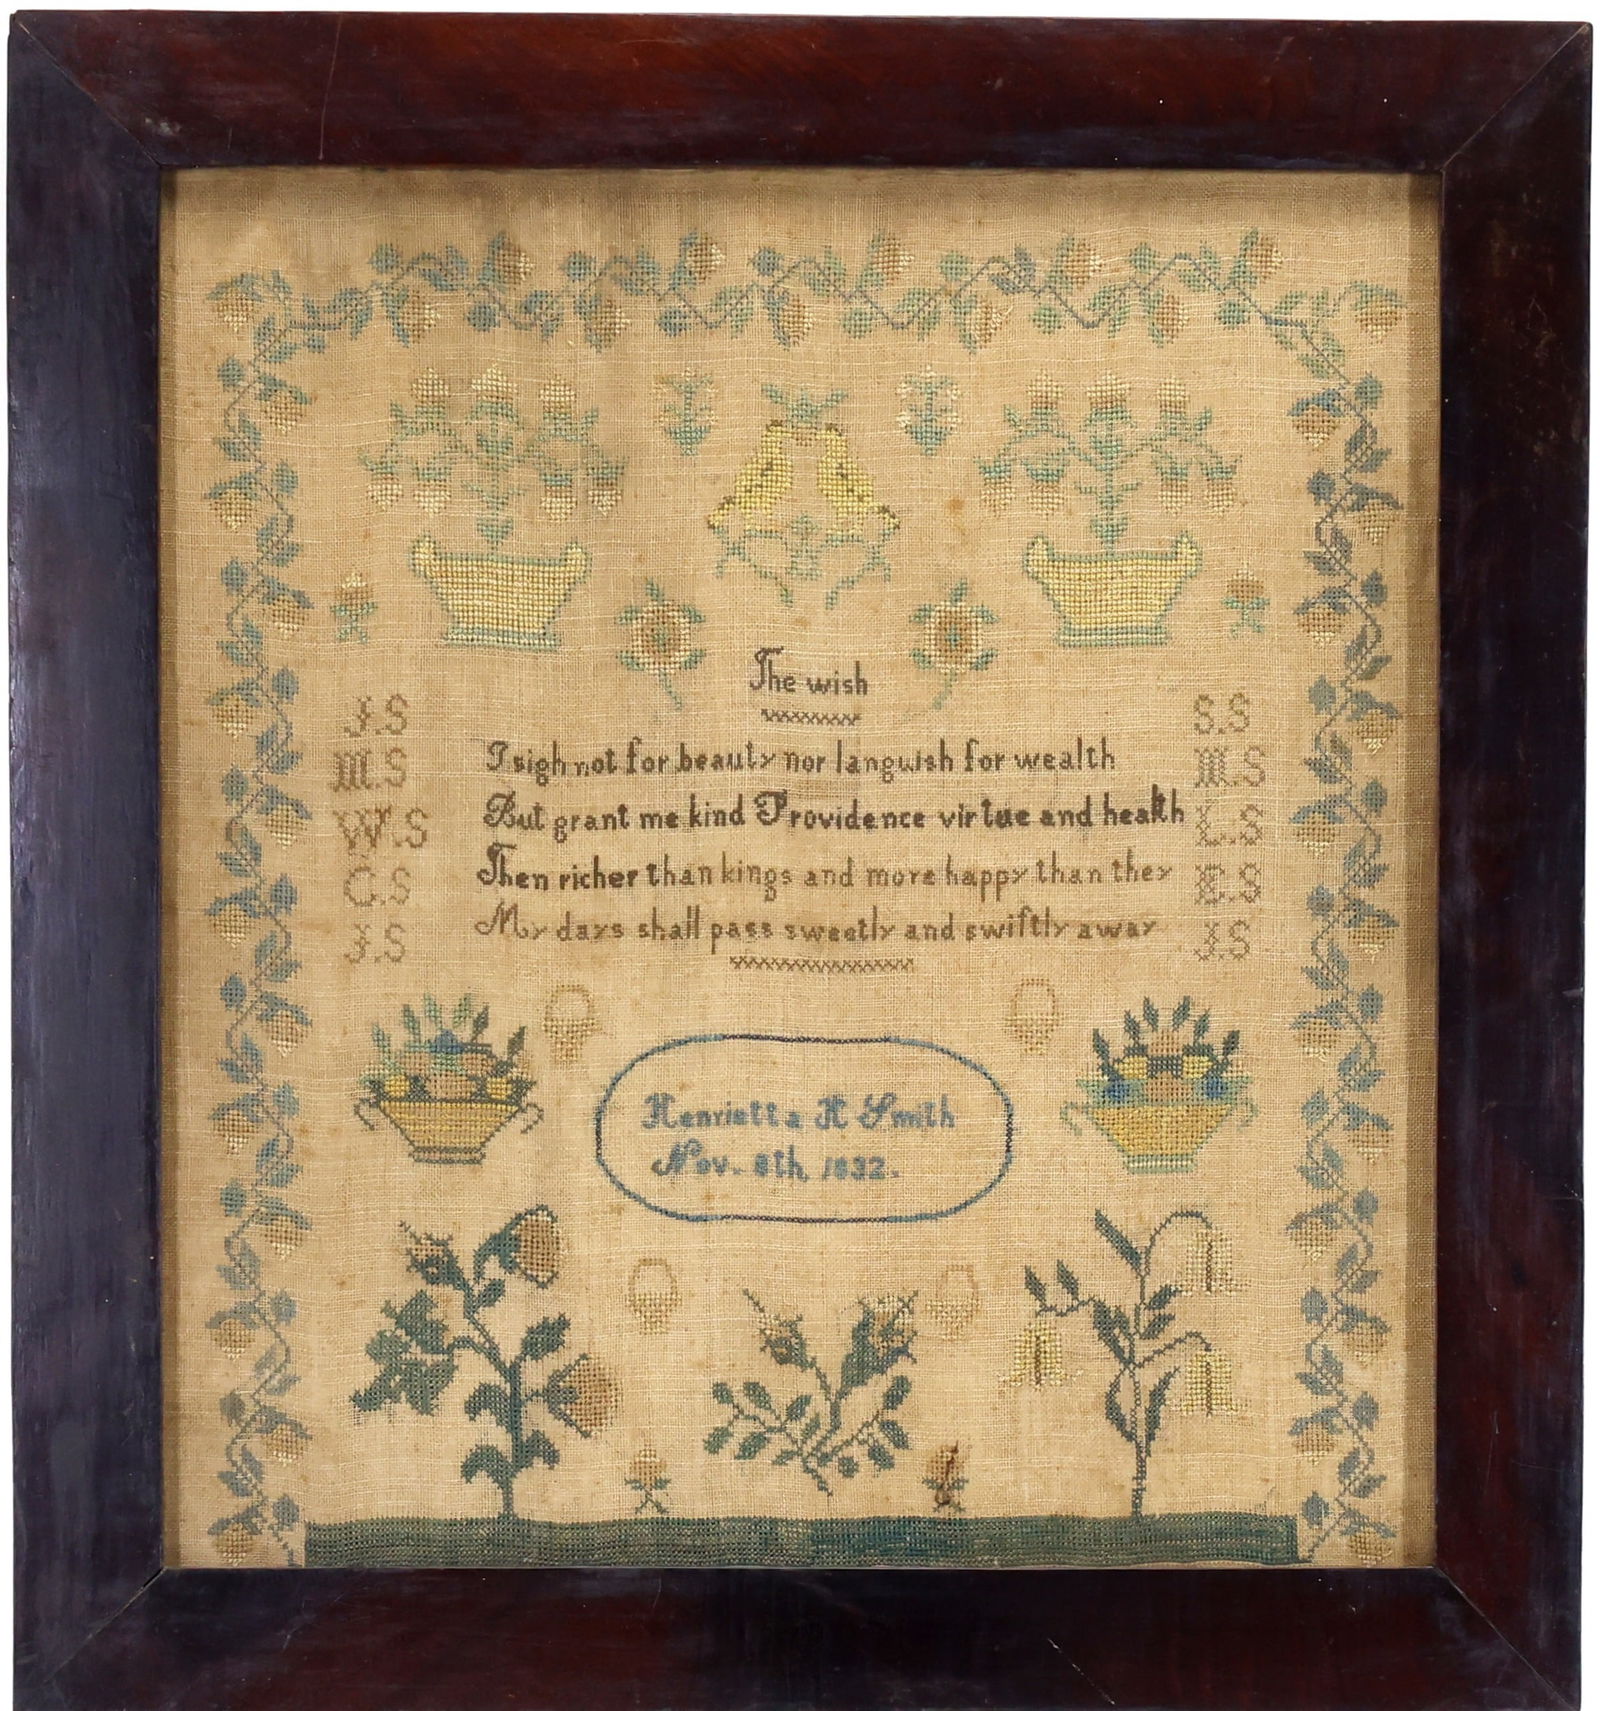 The wish
J.S
S.S
I sigh not for beauty nor languish for wealth
M.S
M.S
But grant me kind Providence virtue and health
W.S
L.S
Then richer than kings and more happy than they
C.S
E.S
My days shall pass sweetly and swiftly away
J.S
J.S
Henrietta H Smith
Nov. 8th, 1832.